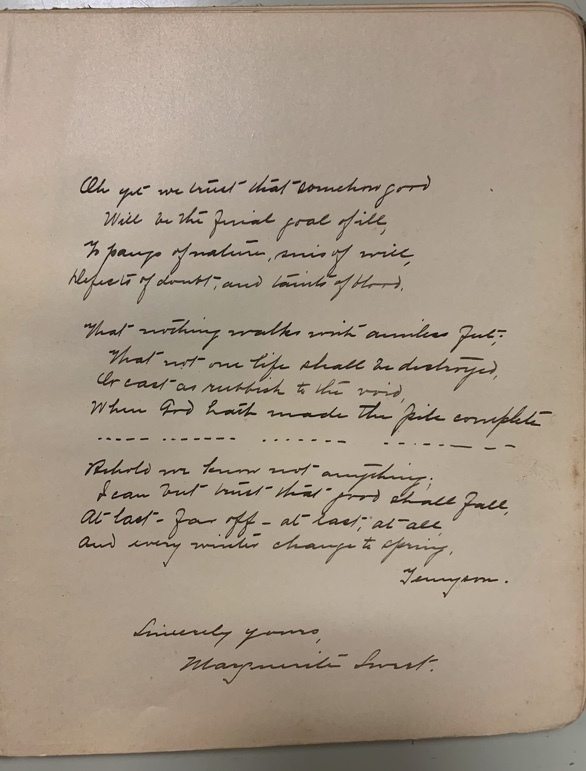 Oh yet we trust that somehow good
Will be the final goal of ill,
To pangs of nature, sins of will,
Defects of doubt, and taints of blood.
That nothing walks with aimless feet;
That not one life shall be destroyed,
Or cast as rubbish to the void,
When God hath made the pile complete
Behold we know not anything;
I can but trust that good shall fall,
At last - far off - at last, at all,
And every winter change to spring.
Tennyson.
Sincerely yours,
Marguerite Sweet.